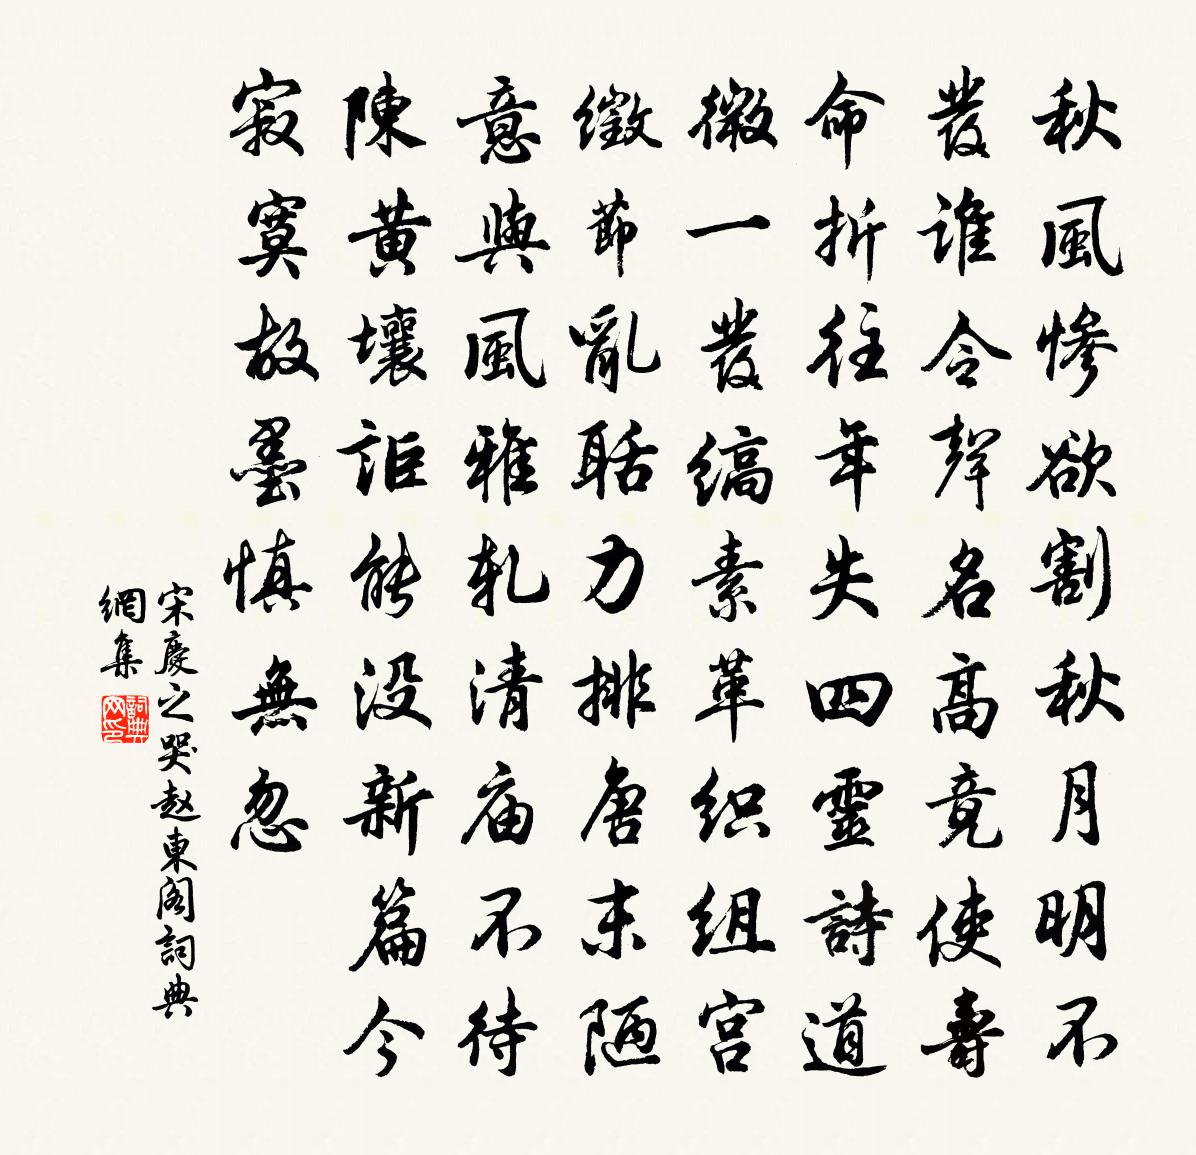 秋風慘欲割秋月明不
發誰令聲名高竟使壽
命折往年失四靈詩道
微一發縞素革织组宫
徵節亂聒力排唐末陋
意與風雅軋清庙不待
陳黄壤詎能没新篇今
寂寞故墨慎無忽
宋慶之哭赵東阁詞典
網集
詞典网印